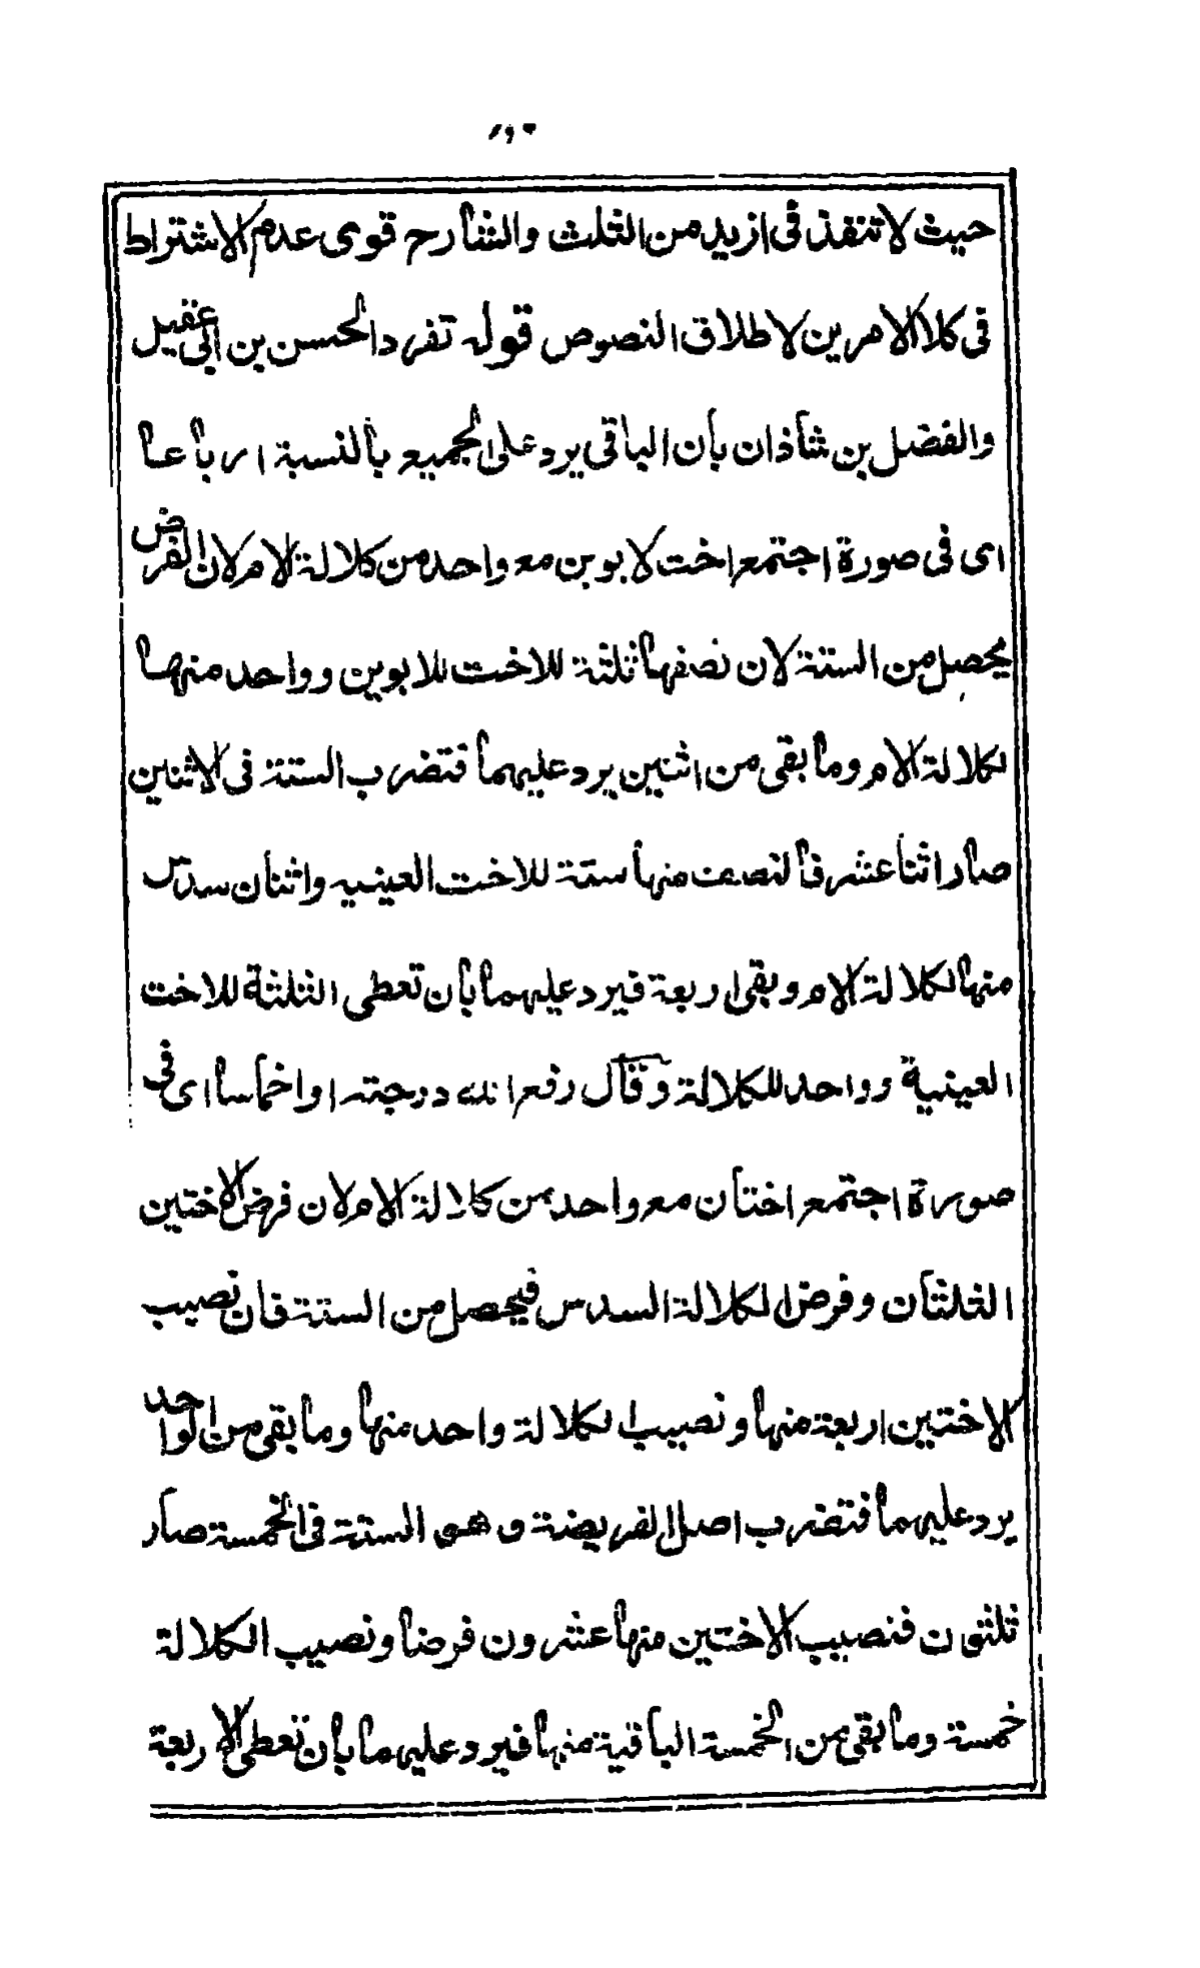 حيث لا تنفذ فى ازيد من الثلث والشارح قوى عدم الاشتراط
فى كلا الامرين لاطلاق النصوص قوله تفرد الحسن بن ابى عقيل
والفضل بن شاذان بان الباقى يرد على الجميع بالنسبة ارباعا
اى فى صورة اجتمع اخت لابوين مع واحد من كلالة الام لان الفرض
يحصل من الستة لان نصفها ثلثة للاخت للابوين وواحد منها
لكلالة الام وما بقى من اثنين يرد عليهما فتضرب الستة فى الاثنين
صار اثنا عشر فالنصف منها ستة للاخت العينيه واثنان سدس
منها لكلالة الام وبقى اربعة فيرد عليهما بان تعطى الثلثة للاخت
العينية وواحد للكلالة وقال رفع الله درجته اواخماسا اى فى
صورة اجتمع اختان مع واحد من كلالة الام لان فرض الاختين
الثلثان وفرض الكلالة السدس فيحصل من الستة فان نصيب
الاختين اربعة منها ونصيب الكلالة واحد منها وما بقى من الواحد
يرد عليهما فتضرب اصل الفريضة وهى الستة فى الخمسة صار
ثلثون فنصيب الاختين منها عشرون فرضا ونصيب الكلالة
خمسة وما بقى من الخمسة الباقية منها فيرد عليهما بان تعطى الاربعة